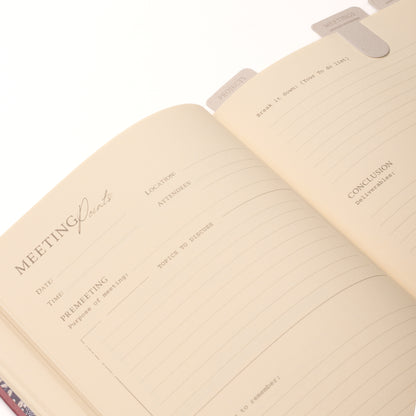 PROJECTS
MEETINGS
MEETING Points
LOCATION:
ATTENDEES:
DATE:
TIME:
PREMEETING
Purpose of meeting:
TOPICS TO DISCUSS
to remember:
Break it down! (Your To do list)
CONCLUSION
Deliverables: